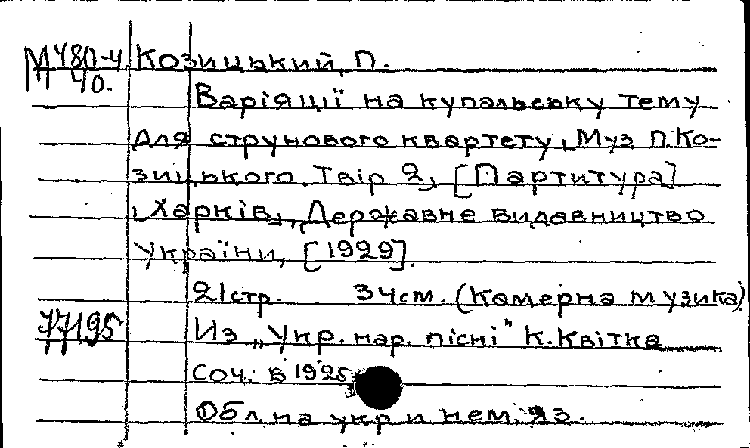 М 480-4 Козицький, П.
40.
Варіяції на купальську тему
для струнового квартету, Муз П. Ко-
зицького. Твір 2, [Партитура]
Харків, „Державне видавництво
України, [1929].
21 стр. 34 см. (Камерна музика).
77195 Из „Укр. нар. пісні" К. Квітка
Соч. в 1925
Обл. на укр и нем. яз.